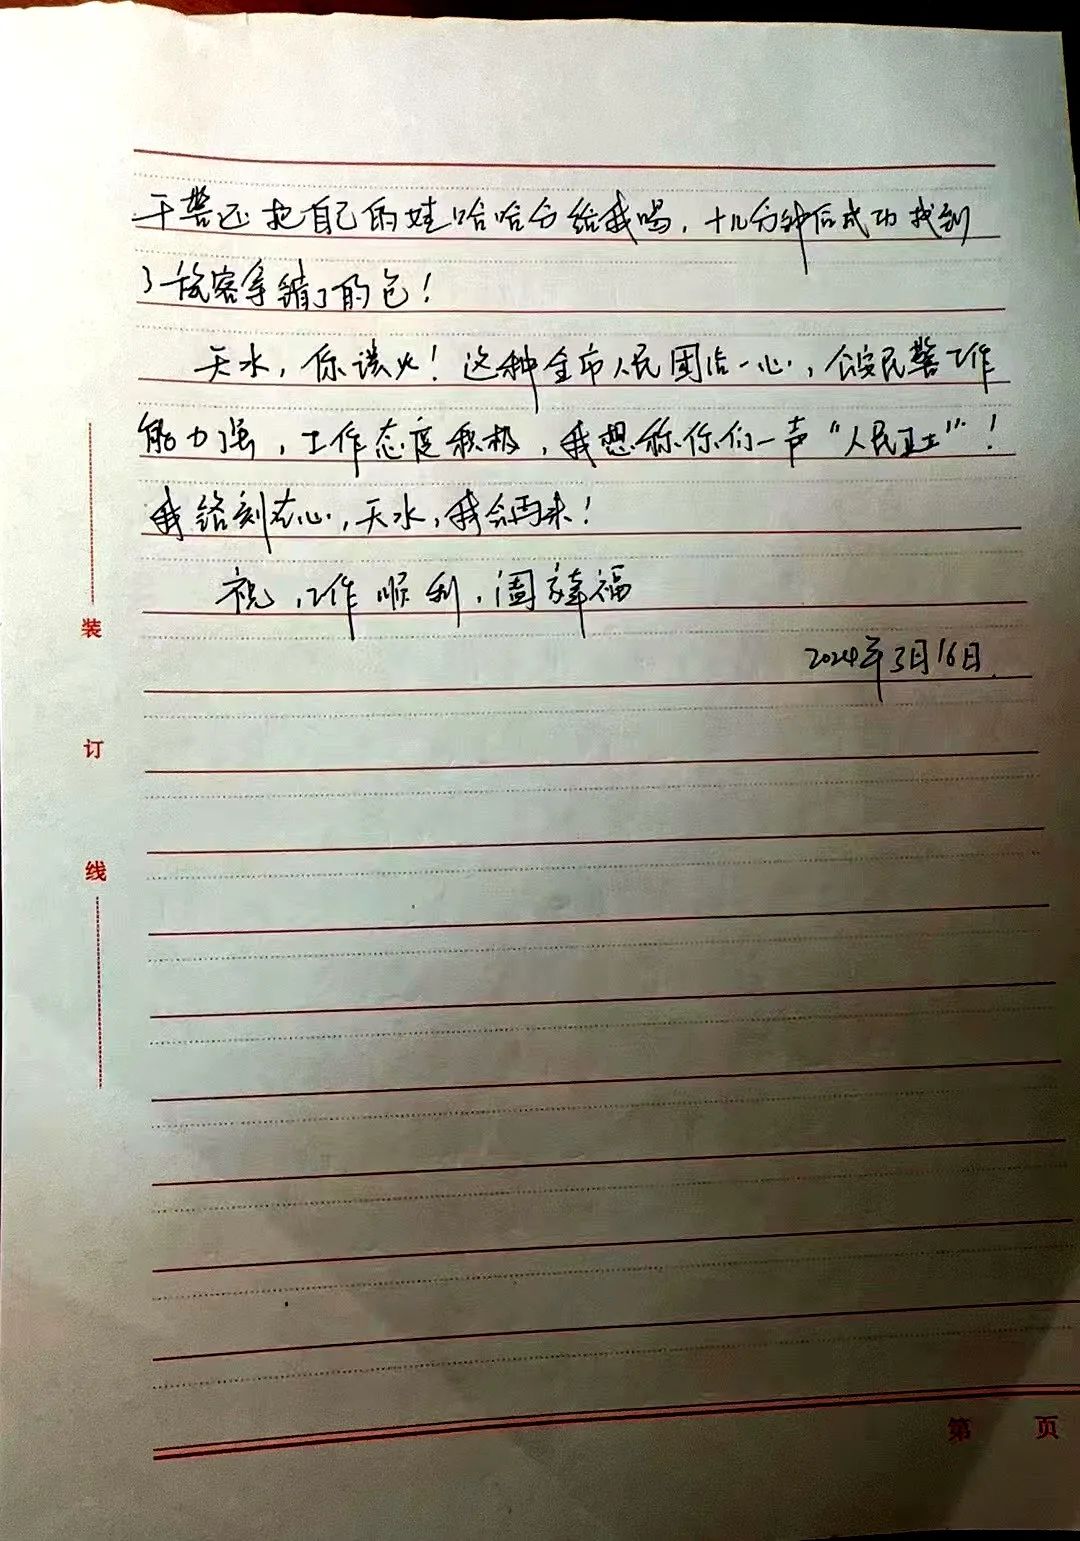 干警还把自己的娃哈哈分给我喝，十几分钟后成功找到
了旅客拿错了的包！
天水，你该火！这种全市人民团结一心，公安民警工作
能力强，工作态度积极，我想称你们一声“人民卫士”！
我铭刻在心，天水，我会再来！
祝，工作顺利，阖家幸福
2024年3月16日
装
订
线
第 页